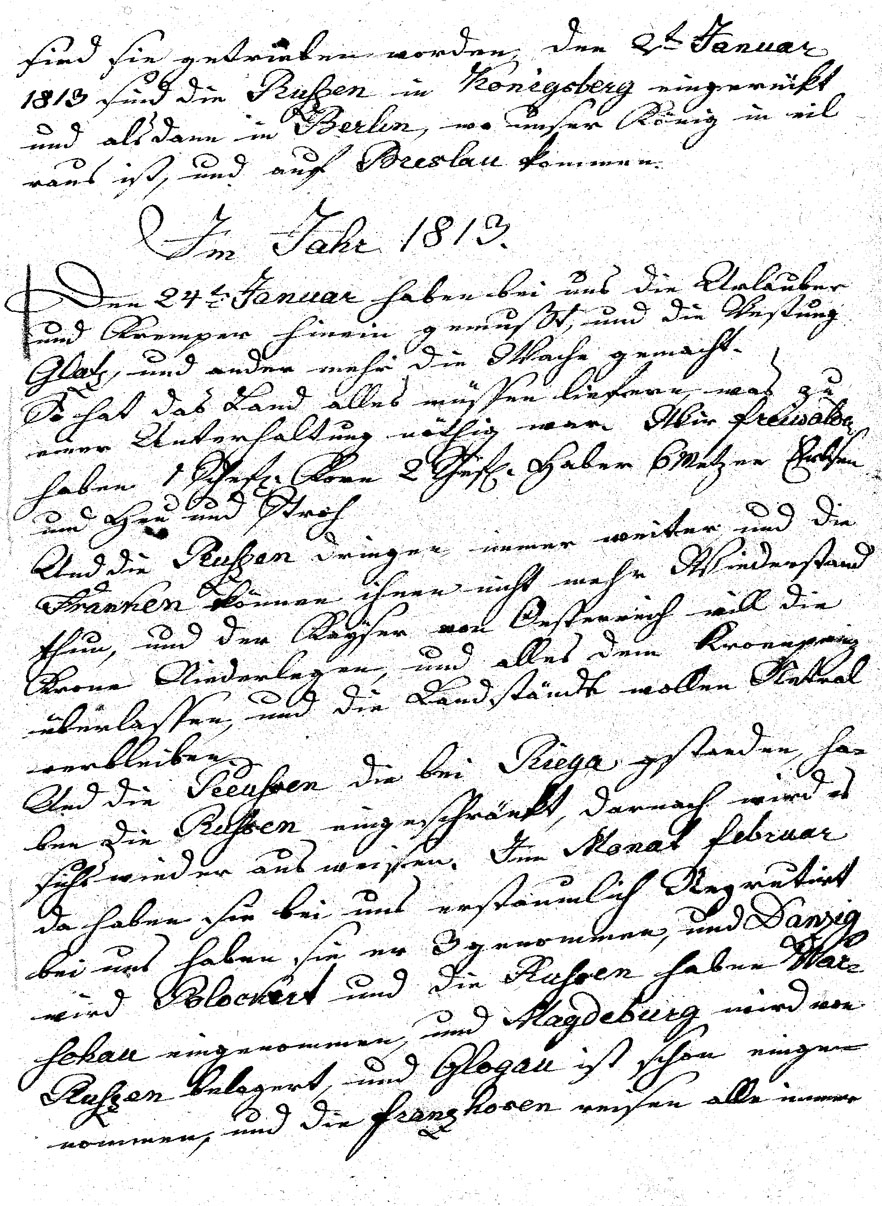 sind sie getrieben worden, den 2t Januar
1813 sind die Rußen in Königsberg eingerückt
und alsdann in Berlin, wo unser König in eil
raus ist, und auf Breslau kommen.
Im Jahr 1813.
Den 24t Januar haben bei uns die Urlauber
und Kremper hinein gemußt, und die Vestung
Glatz, und ander mehr die Wache gemacht.
So hat das Land alles müssen liefern, was zu
einer Unterhaltung nöthig war. Wir freiwalde
haben 1 Schef. Korn 2 Schef. Haber 6 Metzen Erbsen
und Heu und Stroh
Und die Reußen dringen immer weiter und die
Franken können ihnen nicht mehr Wiederstand
thun, und der Kayser von Oesterreich will die
Krone Niederlegen, und alles dem Kronprinz
überlassen, und die Landstände wollen Netral
verbleiben.
Und die Preussen die bei Riega gstanden, ha-
ben die Russen eingeschränkt, darnach wird es
sichs wieder ausweisen. Im Monat februar
da haben sie bei uns erstaunlich Regrutirt
bei uns haben sie er 3 genommen, und Danzig
wird Blockirt und die Russen haben War-
schau eingenommen, und Magdeburg wird von
Rußen belagert, und Glogau ist schon einge-
nommen, und die franzhosen reisen alle immer